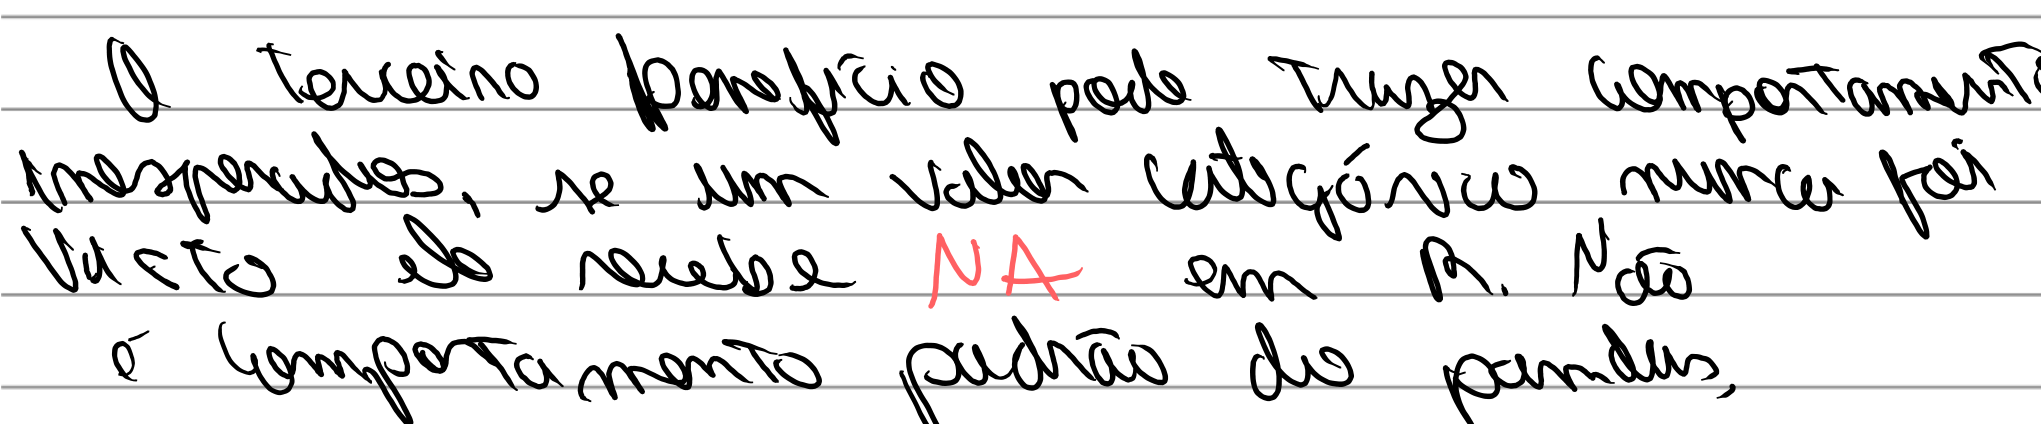 O terceiro benefício pode trazer comportamento
inesperados, se um valor categórico nunca foi
visto ele recebe NA em R. Não
é comportamento padrão do pandas,